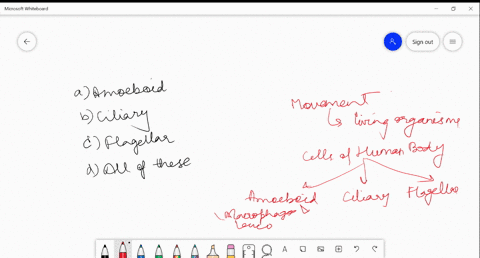 Microsoft Whiteboard
Sign out
a) Amoeboid
b) Ciliary
c) Flagellar
d) All of these
Movement
living organisms
Cells of Human Body
Amoeboid Ciliary Flagella
Macrophage
Leuco
A